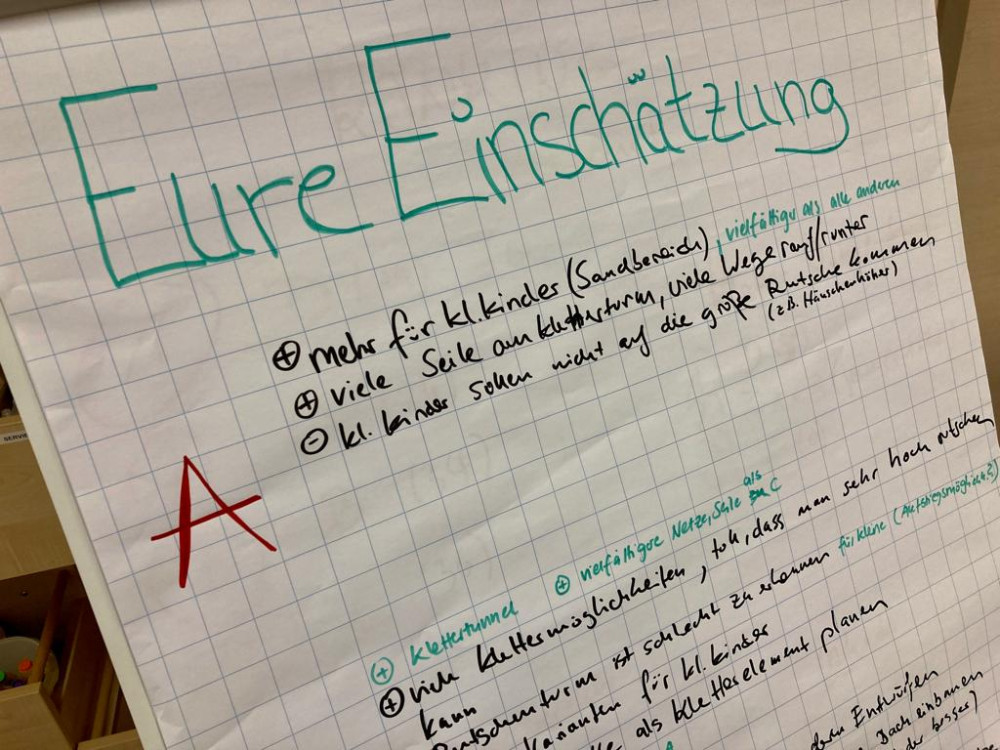 Eure Einschätzung
⊕ mehr für kl. kinder (Sandbereich), vielfältiger als alle anderen
⊕ viele Seile am kletterturm, viele Wege rauf/runter
⊖ kl. kinder sollen nicht auf die große Rutsche kommen
(z.B. Häuschen höher)
A
⊕ Klettertunnel ⊕ vielfältigere Netze, Seile als C
⊕ viele klettermöglichkeiten, toll, dass man sehr hoch rutschen
kann
Rutschenturm ist schlecht zu erkennen für kleine (Aufstiegsmöglichk.?)
Varianten für kl. kinder
als kletterelement planen
Entwürfen
Dach einbauen
besser)